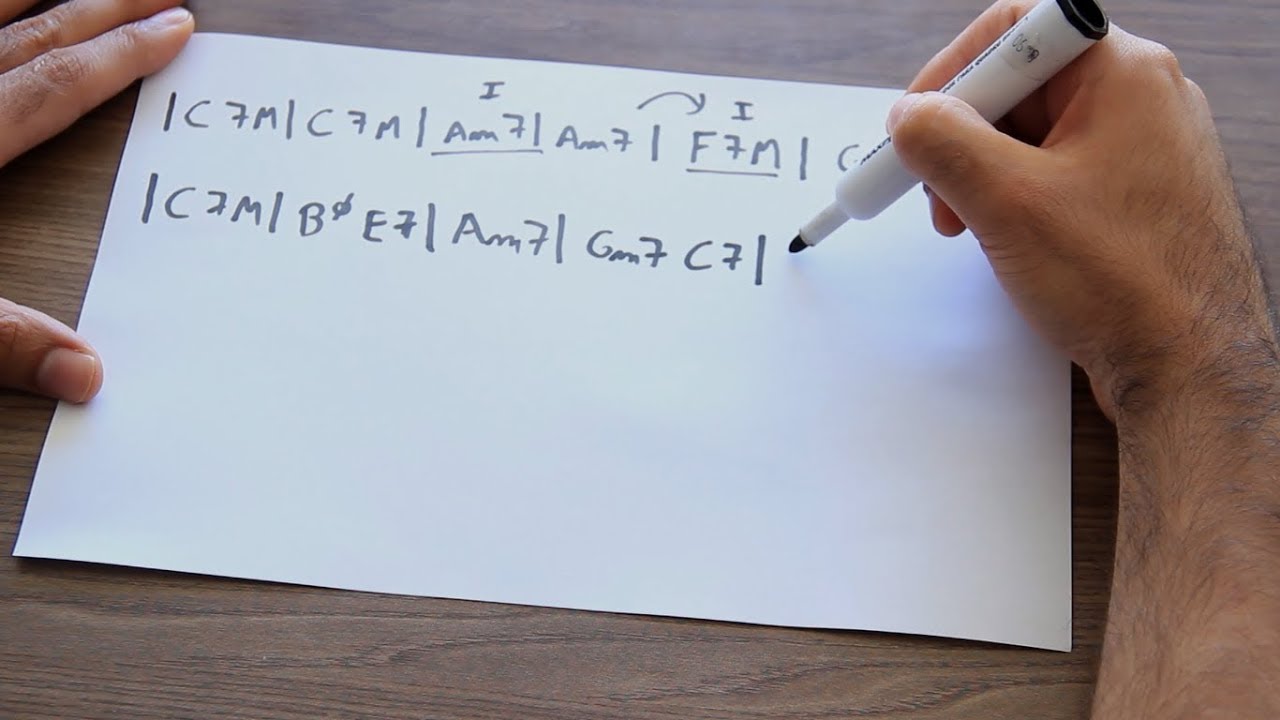 I I
|C7M|C7M|Am7|Am7|F7M|
|C7M|Bø E7|Am7|Gm7 C7|